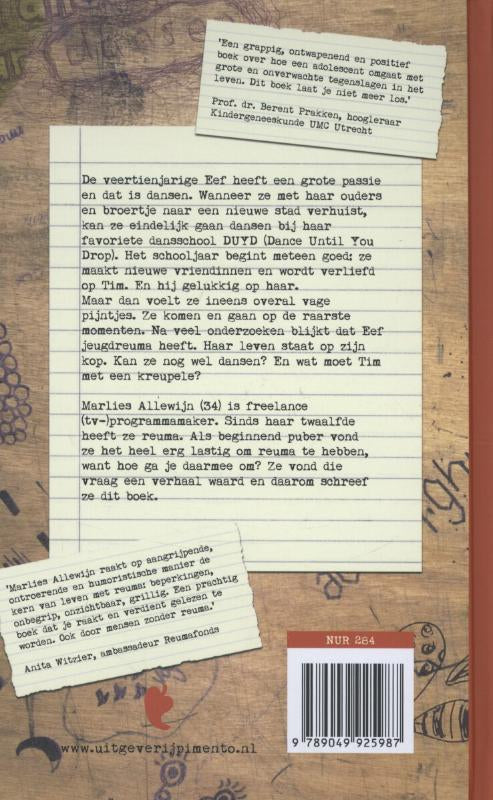 'Een grappig, ontwapenend en positief
boek over hoe een adolescent omgaat met
grote en onverwachte tegenslagen in het
leven. Dit boek laat je niet meer los.'
Prof. dr. Berent Prakken, hoogleraar
Kindergeneeskunde UMC Utrecht
De veertienjarige Eef heeft een grote passie
en dat is dansen. Wanneer ze met haar ouders
en broertje naar een nieuwe stad verhuist,
kan ze eindelijk gaan dansen bij haar
favoriete dansschool DUYD (Dance Until You
Drop). Het schooljaar begint meteen goed: ze
maakt nieuwe vriendinnen en wordt verliefd
op Tim. En hij gelukkig op haar.
Maar dan voelt ze ineens overal vage
pijntjes. Ze komen en gaan op de raarste
momenten. Na veel onderzoeken blijkt dat Eef
jeugdreuma heeft. Haar leven staat op zijn
kop. Kan ze nog wel dansen? En wat moet Tim
met een kreupele?
Marlies Allewijn (34) is freelance
(tv-)programmamaker. Sinds haar twaalfde
heeft ze reuma. Als beginnend puber vond
ze het heel erg lastig om reuma te hebben,
want hoe ga je daarmee om? Ze vond die
vraag een verhaal waard en daarom schreef
ze dit boek.
'Marlies Allewijn raakt op aangrijpende,
ontroerende en humoristische manier de
kern van leven met reuma: beperkingen,
onbegrip, onzichtbaar, grillig. Een prachtig
boek dat je raakt en verdient gelezen te
worden. Ook door mensen zonder reuma.'
Anita Witzier, ambassadeur Reumafonds
www.uitgeverijpimento.nl
NUR 284
9 789049 925987